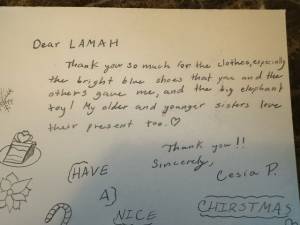 Dear LAMAH
Thank you so much for the clothes, especially
the bright blue shoes that you and the
others gave me, and the big elephant
toy! My older and younger sisters love
their present too. ♡
Thank you!!
Sincerely,
Cesia P.
HAVE
A
NICE
CHIRSTMAS